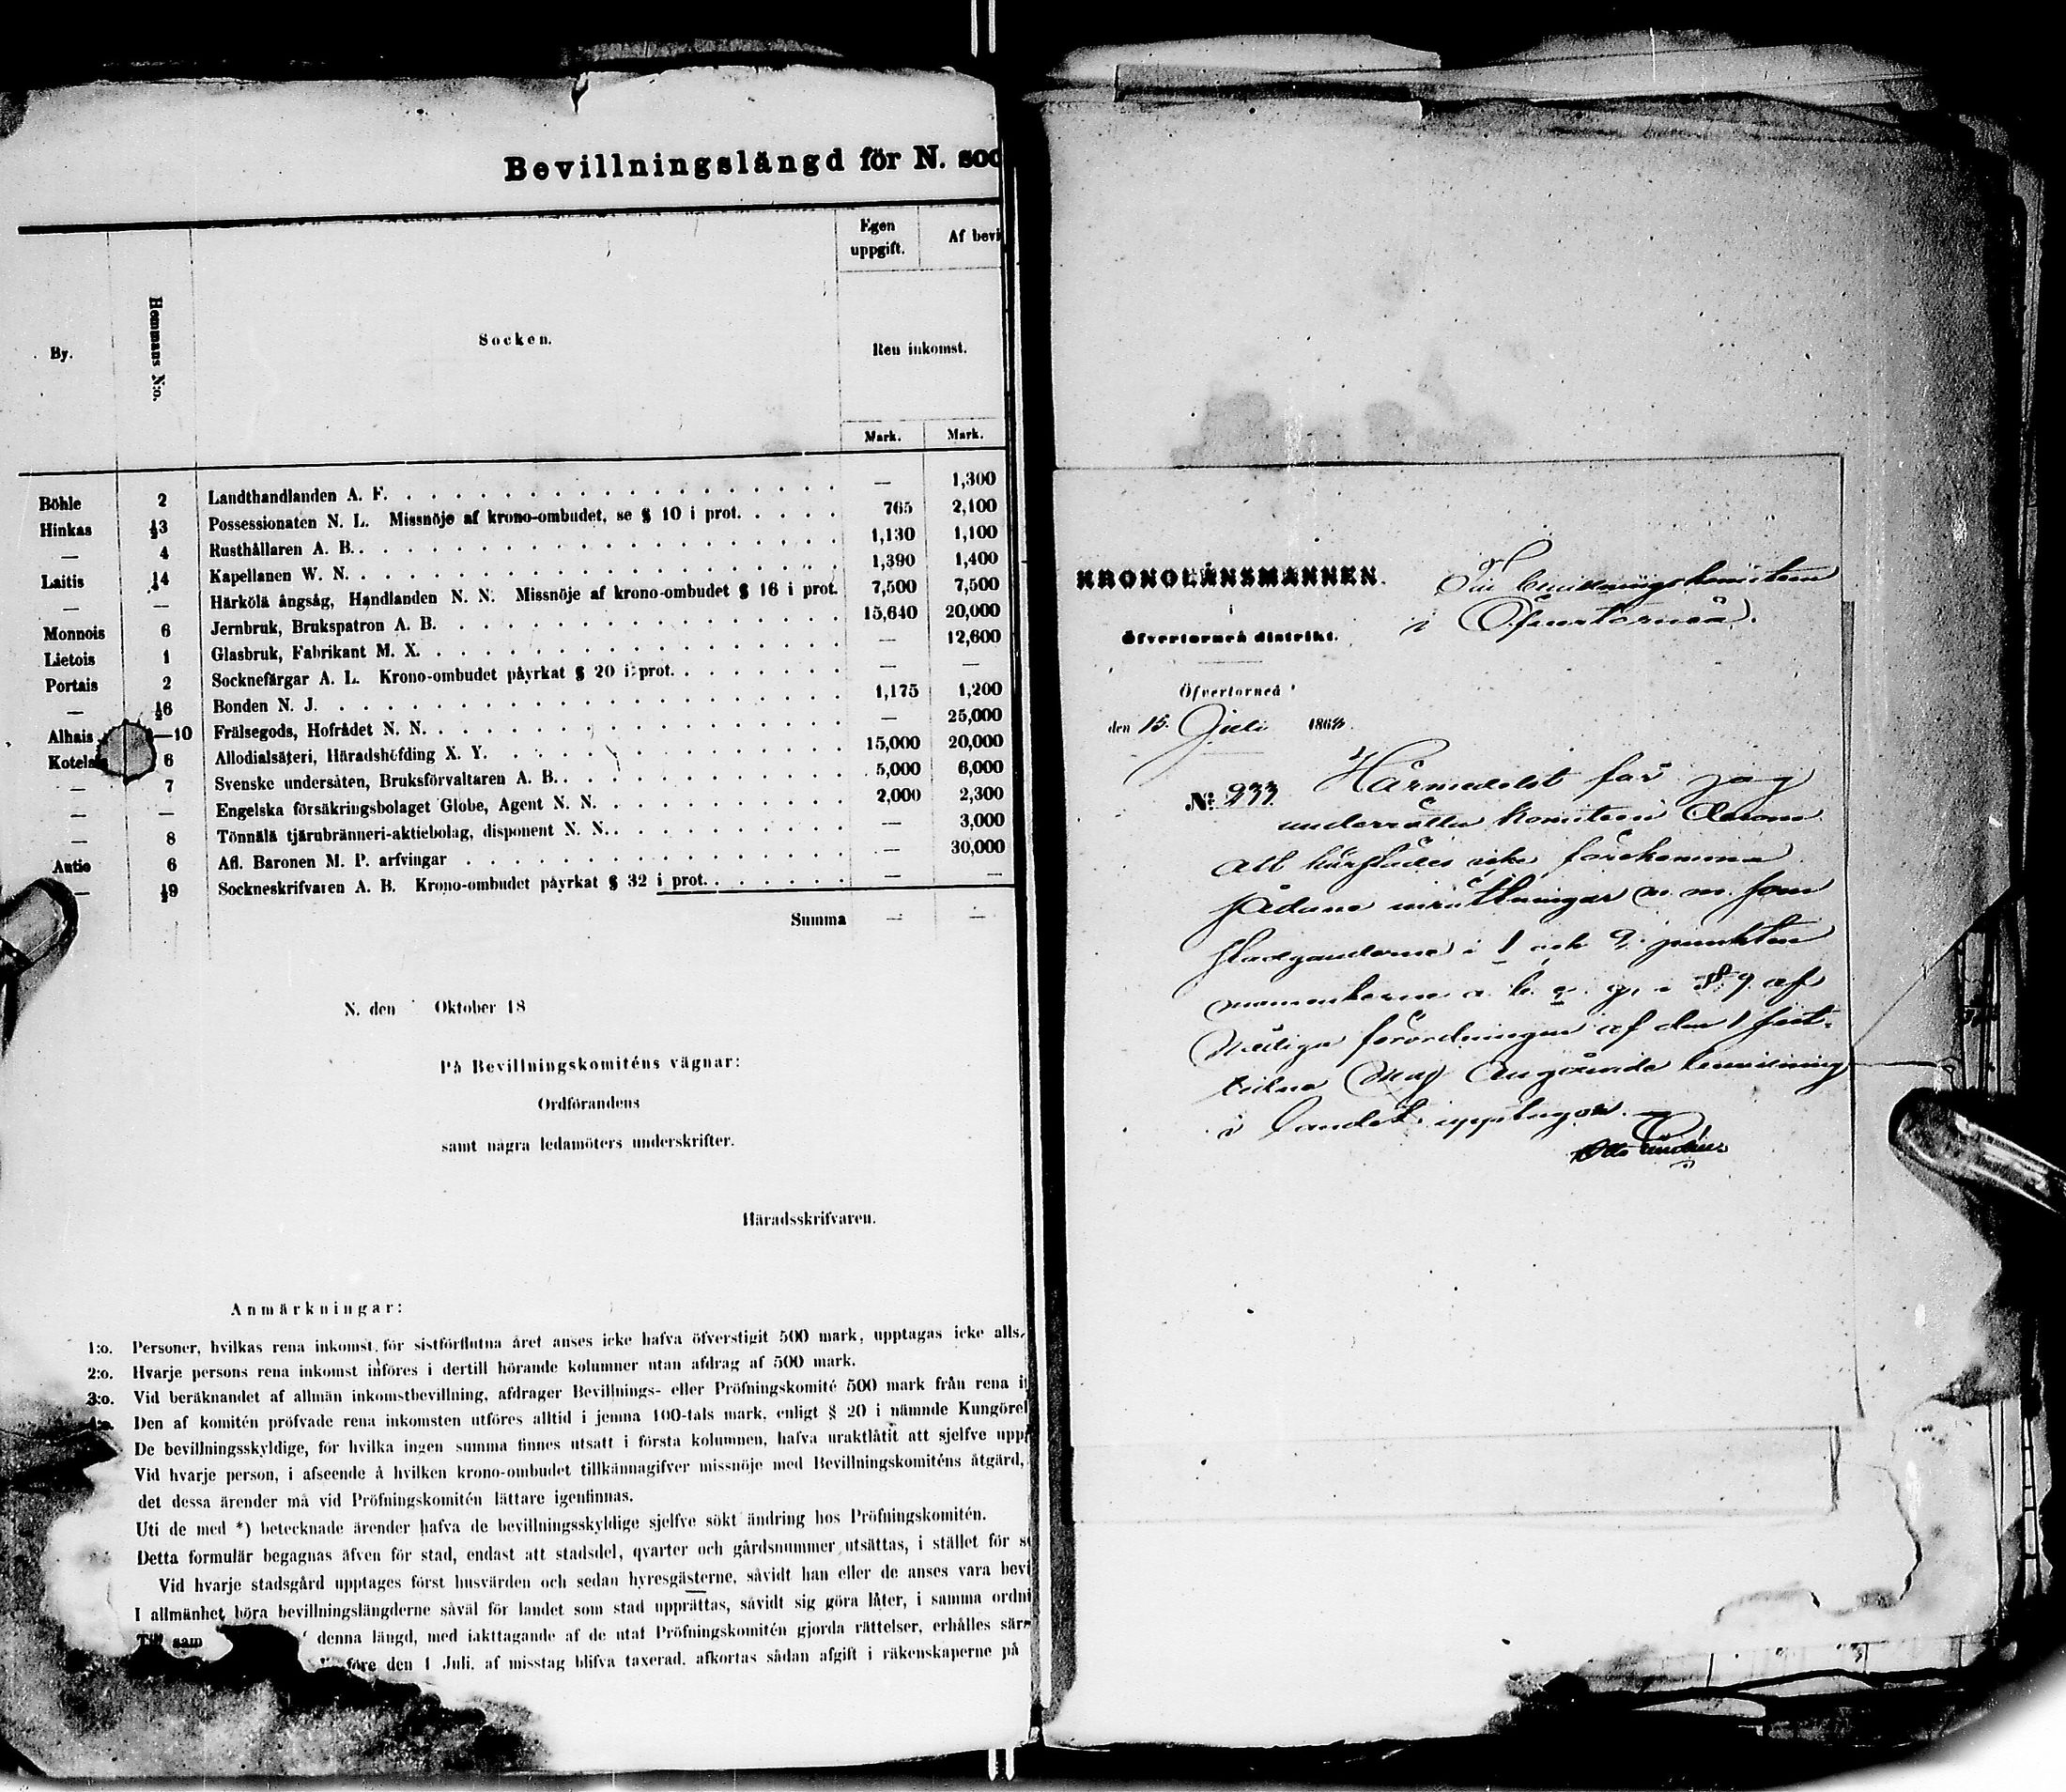 Bevillningslängd för N. soc
By.
Hemmans N:o.
Socken.
Egen uppgift.
Af bevi
Ren inkomst.
Mark. Mark.
Böhle 2 Landthandlanden A. F. — 1,300
Hinkas ½3 Possessionaten N. L. Missnöje af krono-ombudet, se § 10 i prot. 765 2,100
— 4 Rusthållaren A. B. 1,130 1,100
Laitis ½4 Kapellanen W. N. 1,390 1,400
— — Härkölä ångsåg, Handlanden N. N. Missnöje af krono-ombudet § 16 i prot. 7,500 7,500
Monnois 6 Jernbruk, Brukspatron A. B. 15,640 20,000
Lietois 1 Glasbruk, Fabrikant M. X. — 12,600
Portais 2 Socknefärgar A. L. Krono-ombudet påyrkat § 20 i prot. — —
— ½6 Bonden N. J. 1,175 1,200
Alhais —10 Frälsegods, Hofrådet N. N. — 25,000
Kotela 6 Allodialsäteri, Häradshöfding X. Y. 15,000 20,000
— 7 Svenske undersåten, Bruksförvaltaren A. B. 5,000 6,000
— — Engelska försäkringsbolaget Globe, Agent N. N. 2,000 2,300
— 8 Tönnälä tjärubränneri-aktiebolag, disponent N. N. — 3,000
Autio 6 Afl. Baronen M. P. arfvingar — 30,000
— ½9 Sockneskrifvaren A. B. Krono-ombudet påyrkat § 32 i prot. — —
Summa — —
N. den Oktober 18
På Bevillningskomiténs vägnar:
Ordförandens
samt några ledamöters underskrifter.
Häradsskrifvaren.
Anmärkningar:
1:o. Personer, hvilkas rena inkomst för sistförflutna året anses icke hafva öfverstigit 500 mark, upptagas icke alls.
2:o. Hvarje persons rena inkomst införes i dertill hörande kolumner utan afdrag af 500 mark.
3:o. Vid beräknandet af allmän inkomstbevillning, afdrager Bevillnings- eller Pröfningskomité 500 mark från rena i
4:o. Den af komitén pröfvade rena inkomsten utföres alltid i jemna 100-tals mark, enligt § 20 i nämnde Kungörel
De bevillningsskyldige, för hvilka ingen summa finnes utsatt i första kolumnen, hafva uraktlåtit att sjelfve upp
Vid hvarje person, i afseende å hvilken krono-ombudet tillkännagifver missnöje med Bevillningskomiténs åtgärd,
det dessa ärender må vid Pröfningskomitén lättare igenfinnas.
Uti de med *) betecknade ärender hafva de bevillningsskyldige sjelfve sökt ändring hos Pröfningskomitén.
Detta formulär begagnas äfven för stad, endast att stadsdel, qvarter och gårdsnummer utsättas, i stället för s
Vid hvarje stadsgård upptages först husvärden och sedan hyresgästerne, såvidt han eller de anses vara bevi
I allmänhet böra bevillningslängderne såväl för landet som stad upprättas, såvidt sig göra låter, i samma ordni
Till sam denna längd, med iakttagande af de utaf Pröfningskomitén gjorda rättelser, erhålles sär
före den 1 Juli, af misstag blifva taxerad, afkortas sådan afgift i räkenskaperne på
KRONOLÄNSMANNEN.
i
Öfvertorneå distrikt.
Öfvertorneå
den 15. Juli 186
No 233.
Till Bevillningskomiteen
i Öfvertorneå.
Härmedelst får jag
underrätta Komiteen derom
att härstädes icke förekomma
sådana inrättningar m. m. som
stadganderne i 1 och 2 punkten
momenterne a. b. c. g. i § 9 af
Nådiga förordningen af den 1 sist-
lidne Maj angående bevillning
i landet upptager.
Otto